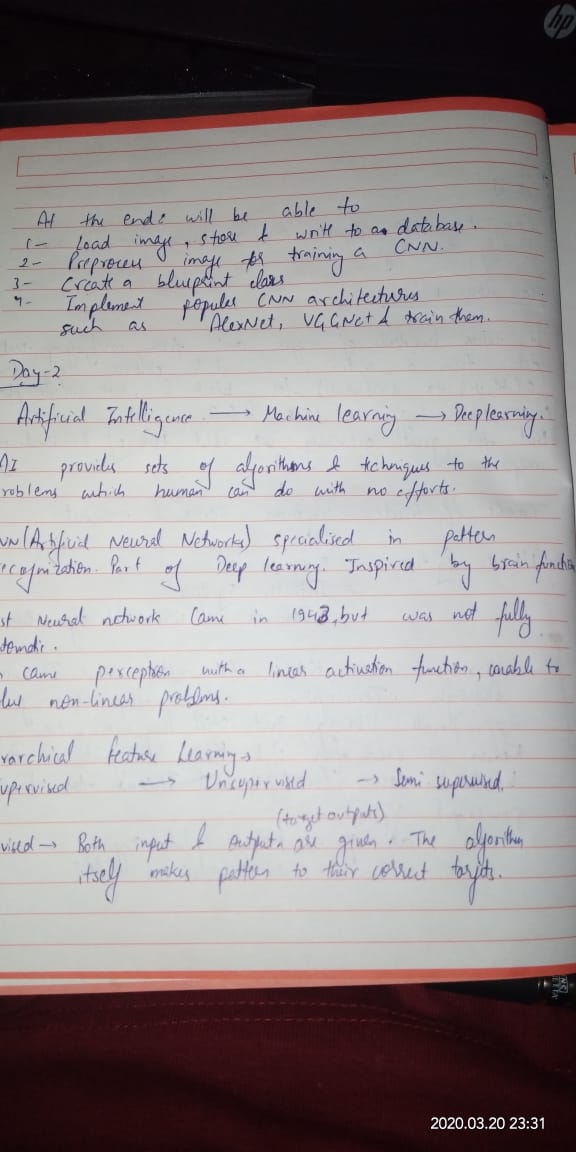 hp
At the end will be able to
1- Load image, store & write to a database.
2- Preprocess image for training a CNN.
3- Create a blueprint class
4- Implement popular CNN architectures
such as AlexNet, VGGNet & train them.
Day-2
Artificial Intelligence → Machine learning → Deep learning.
AI provides sets of algorithms & techniques to the
roblems which human can do with no efforts.
NN (Artificial Neural Networks) specialised in pattern
ecogmization. Part of Deep learning. Inspired by brain function
st Neural network came in 1943, but was not fully
tomatic.
came perceptron with a linear activation function, unable to
lve non-linear problems.
rarchical feature Learning
upervised → Unsupervised → Semi supervised.
(target outputs)
vised → Both input & outputs are given. The algorithm
itself makes pattern to their correct targets.
2020.03.20 23:31